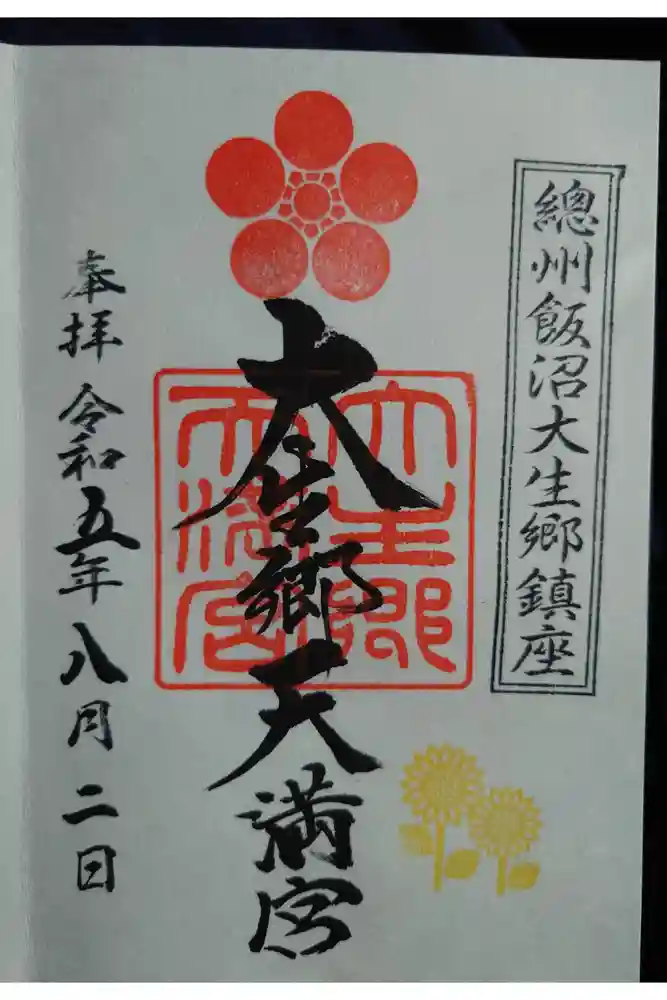 總州飯沼大生郷鎮座
大生郷天満宮
大生郷
天満宮
奉拝 令和五年八月二日